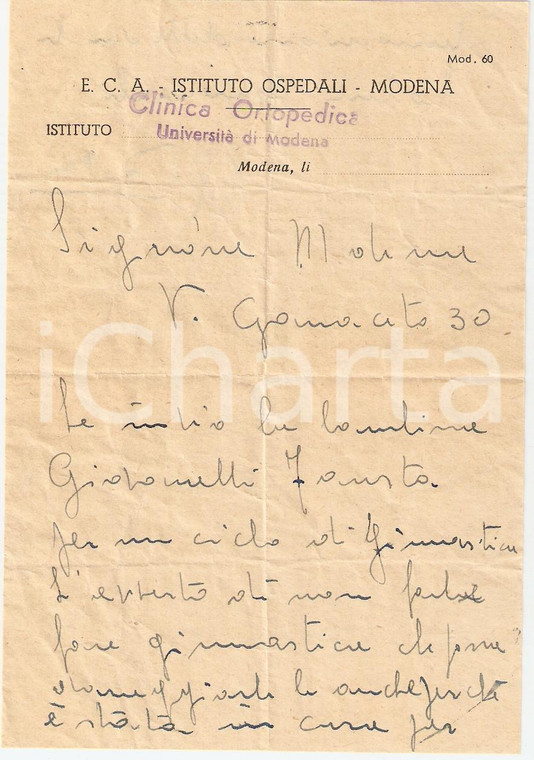 Mod. 60
E. C. A. - ISTITUTO OSPEDALI - MODENA
Clinica Ortopedica
ISTITUTO
Università di Modena
Modena, li
V. 30
iCharta
Le invio la bambina
Giovanelli Fausta
per un ciclo di Ginnastica
di non farle
fare ginnastica che possa
danneggiarle le anche perchè
è stata in cura per